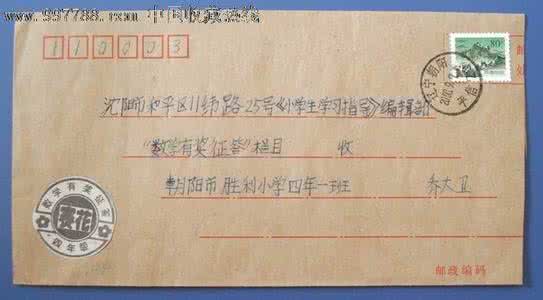 www.997788.com 中国收藏热线
110003
80
辽宁朝阳
沈阳市和平区11纬路25号《小学生学习指导》编辑部
"数学有奖征答"栏目 收
朝阳市胜利小学四年一班 乔大卫
数学有奖征答
葵花
四年级
邮政编码